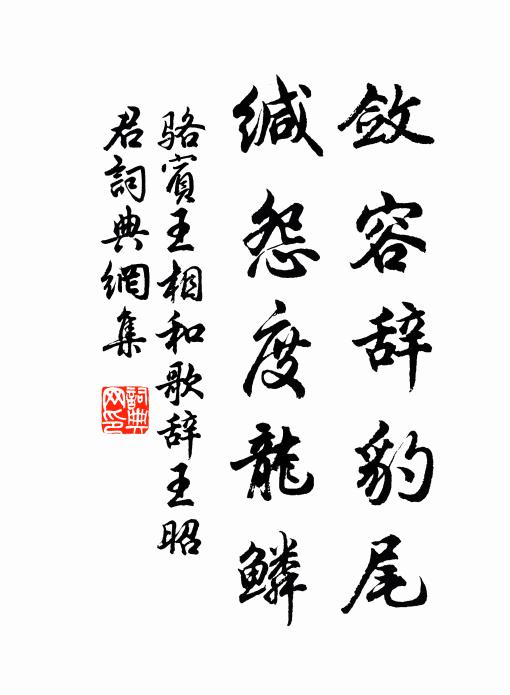 敛容辞豹尾
缄怨度龍鳞
骆賓王相和歌辞王昭
君詞典網集
詞典
网印